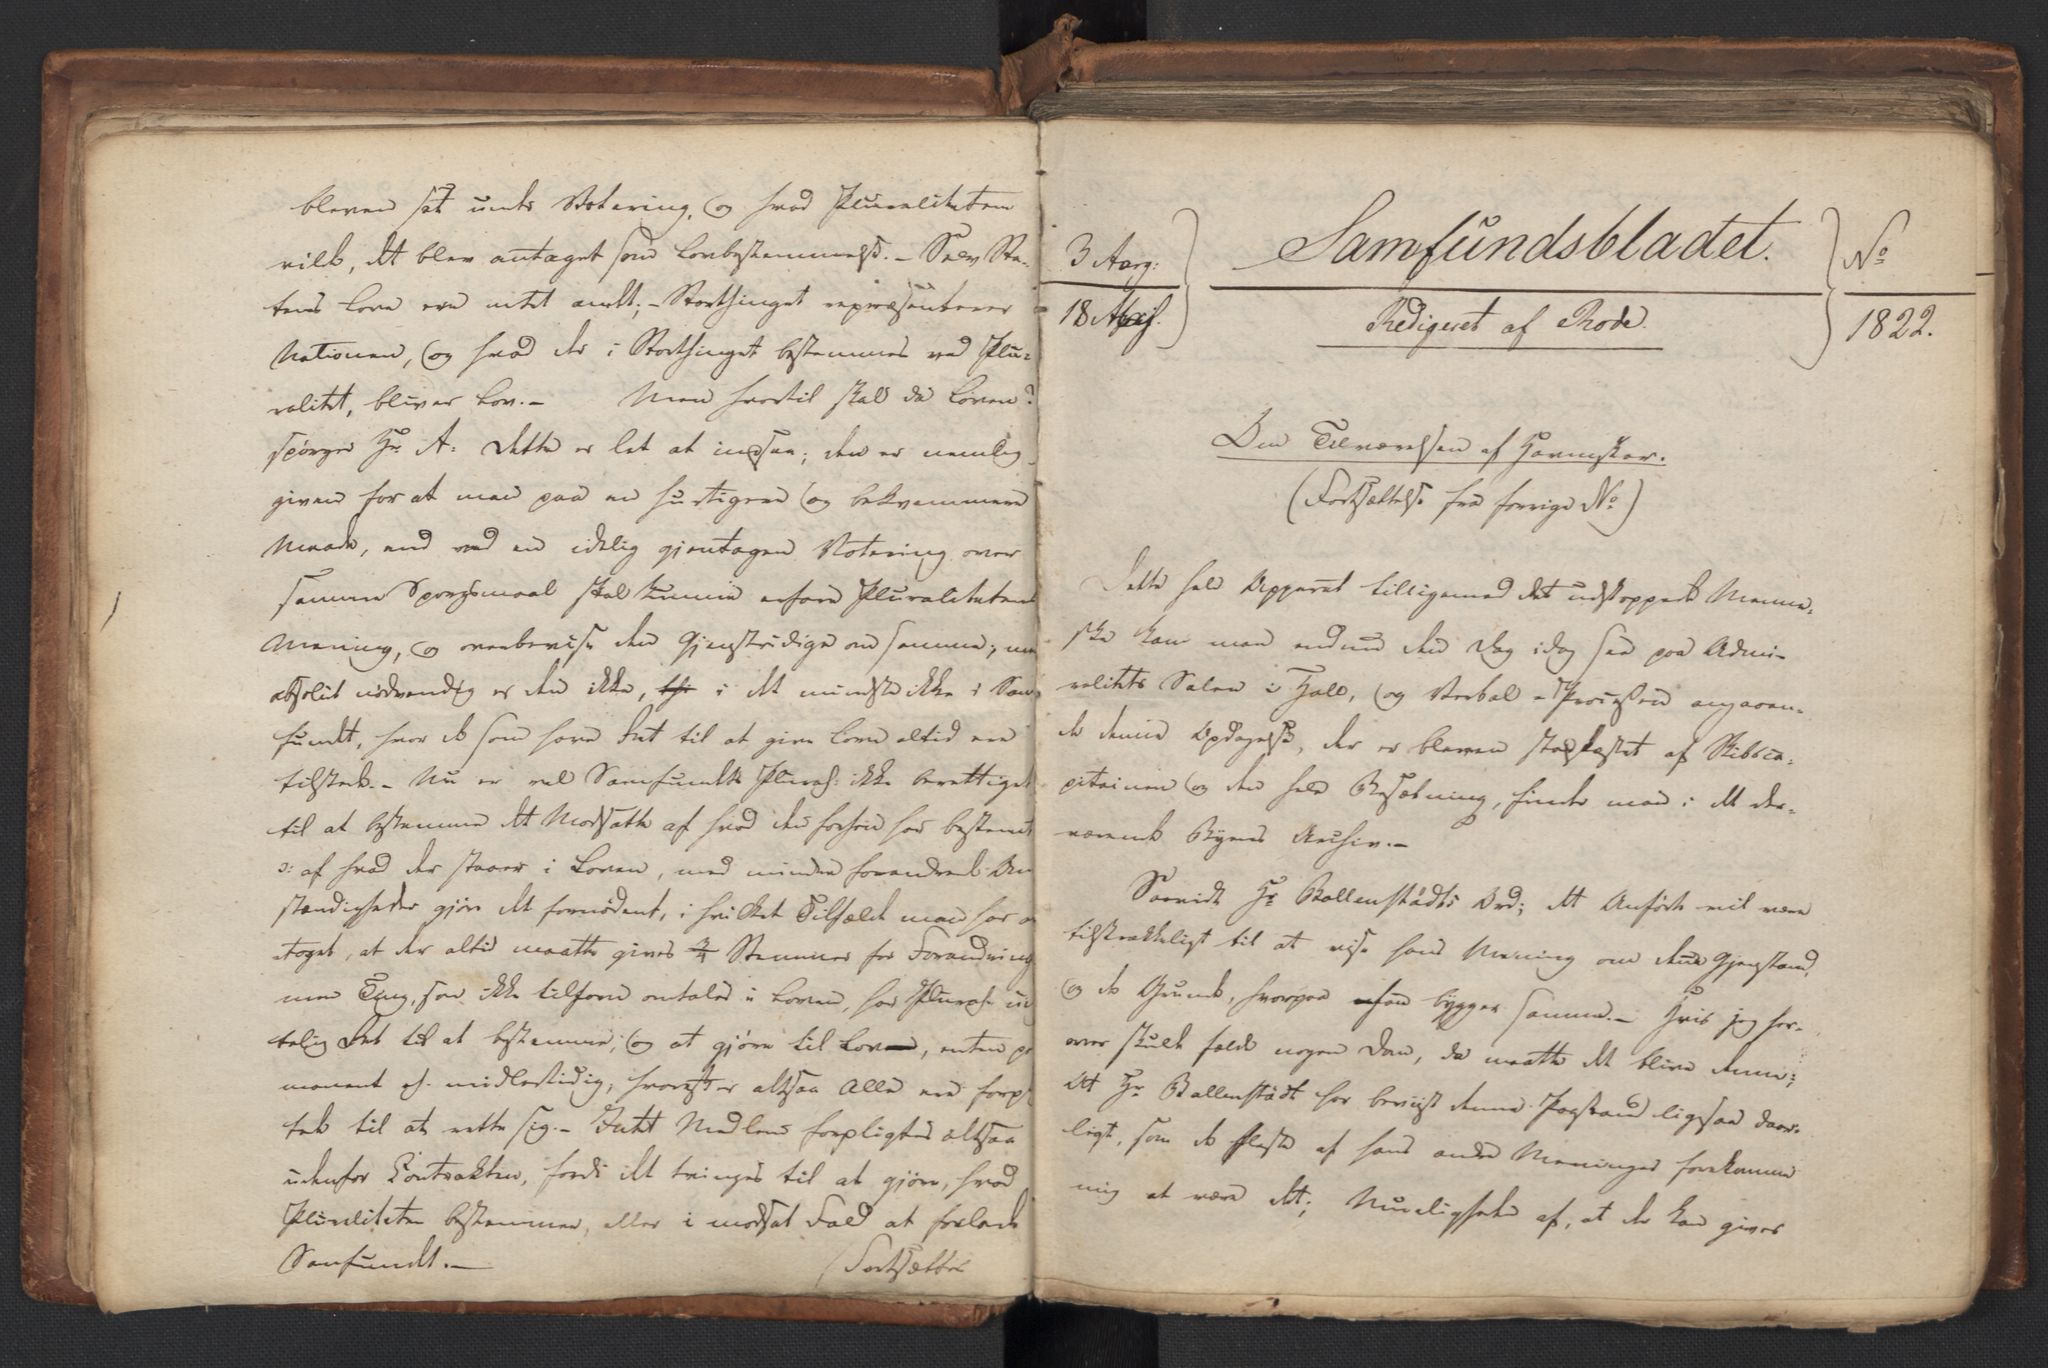 bleven sat under Votering, og hvad Pluraliteten
vilde, det blev antaget som Lovbestemmelse. – Selv Sta-
tens Love ere intet andet; – Storthinget repræsenterer
Nationen, og hvad der i Storthinget bestemmes ved Plu-
ralitet, bliver Lov. – Men hvortil skal da Loven?
spørger Hr A: Dette er let at indsee; den er nemlig
given for at man paa en hurtigere og bekvemmere
Maade, end ved en idelig gjentagen Votering over
samme Spørgsmaal skal kunne erfare Pluralitetens
Mening, og overbevise den Gjenstridige om samme;
absolut nødvendig er den ikke, i det mindste ikke i Sam-
fundet, hvor de som have Ret til at give Love altid ere
tilstede. – Nu er vel Samfundets Plural: ikke berettiget
til at bestemme det Modsatte af hvad den forhen har bestemt
ɔ: af hvad der staaer i Loven, med mindre forandrede Om
stændigheder gjøre det fornødent, i hvilket Tilfælde man har
taget, at der altid maatte gives ¾ Stemmer for Forandring
men Ting, som ikke tilforn omtales i Loven, har Plural:
Ret til at bestemme, og at gjøre til Lov, enten per
manent ell. midlertidig, hvorefter altsaa Alle ere forplig
tede til at rette sig. – Intet Medlem forpligtes altsaa
udenfor Contrakten, fordi det tvinges til at gjøre, hvad
Pluraliteten bestemmer, eller i modsat Fald at forlade
Samfundet. –
(Fortsættes
3 Aarg:
18
Samfundsbladet.
Redigeret af Rode.
No
1822.
Om Tilværelsen af Havmennesker.
(Fortsættelse fra forrige No)
Dette hele Apparat tilligemed det udstoppede Menne-
ske kan man endnu den Dag idag see paa Admi-
ralitets Salen i Hull, og Verbal-Processen angaaen-
de denne Opdagelse, der er bleven stadfæstet af Skibsca-
pitainen og den hele Besætning, finder man i det der-
værende Byens Archiv. –
Saavidt Hr Ballenstädts Ord; det Anførte vil være
tilstrækkeligt til at vise hans Mening om denne Gjenstand,
og de Grunde, hvorpaa han bygger samme. – Hvis jeg her-
over skulde fælde nogen Dom, da maatte det blive denne:
At Hr Ballenstädt har beviist denne Paastand ligesaa daar-
ligt, som de fleste af hans andre Meninger forekomme
mig at være det; Mueligheden af, at der kan gives